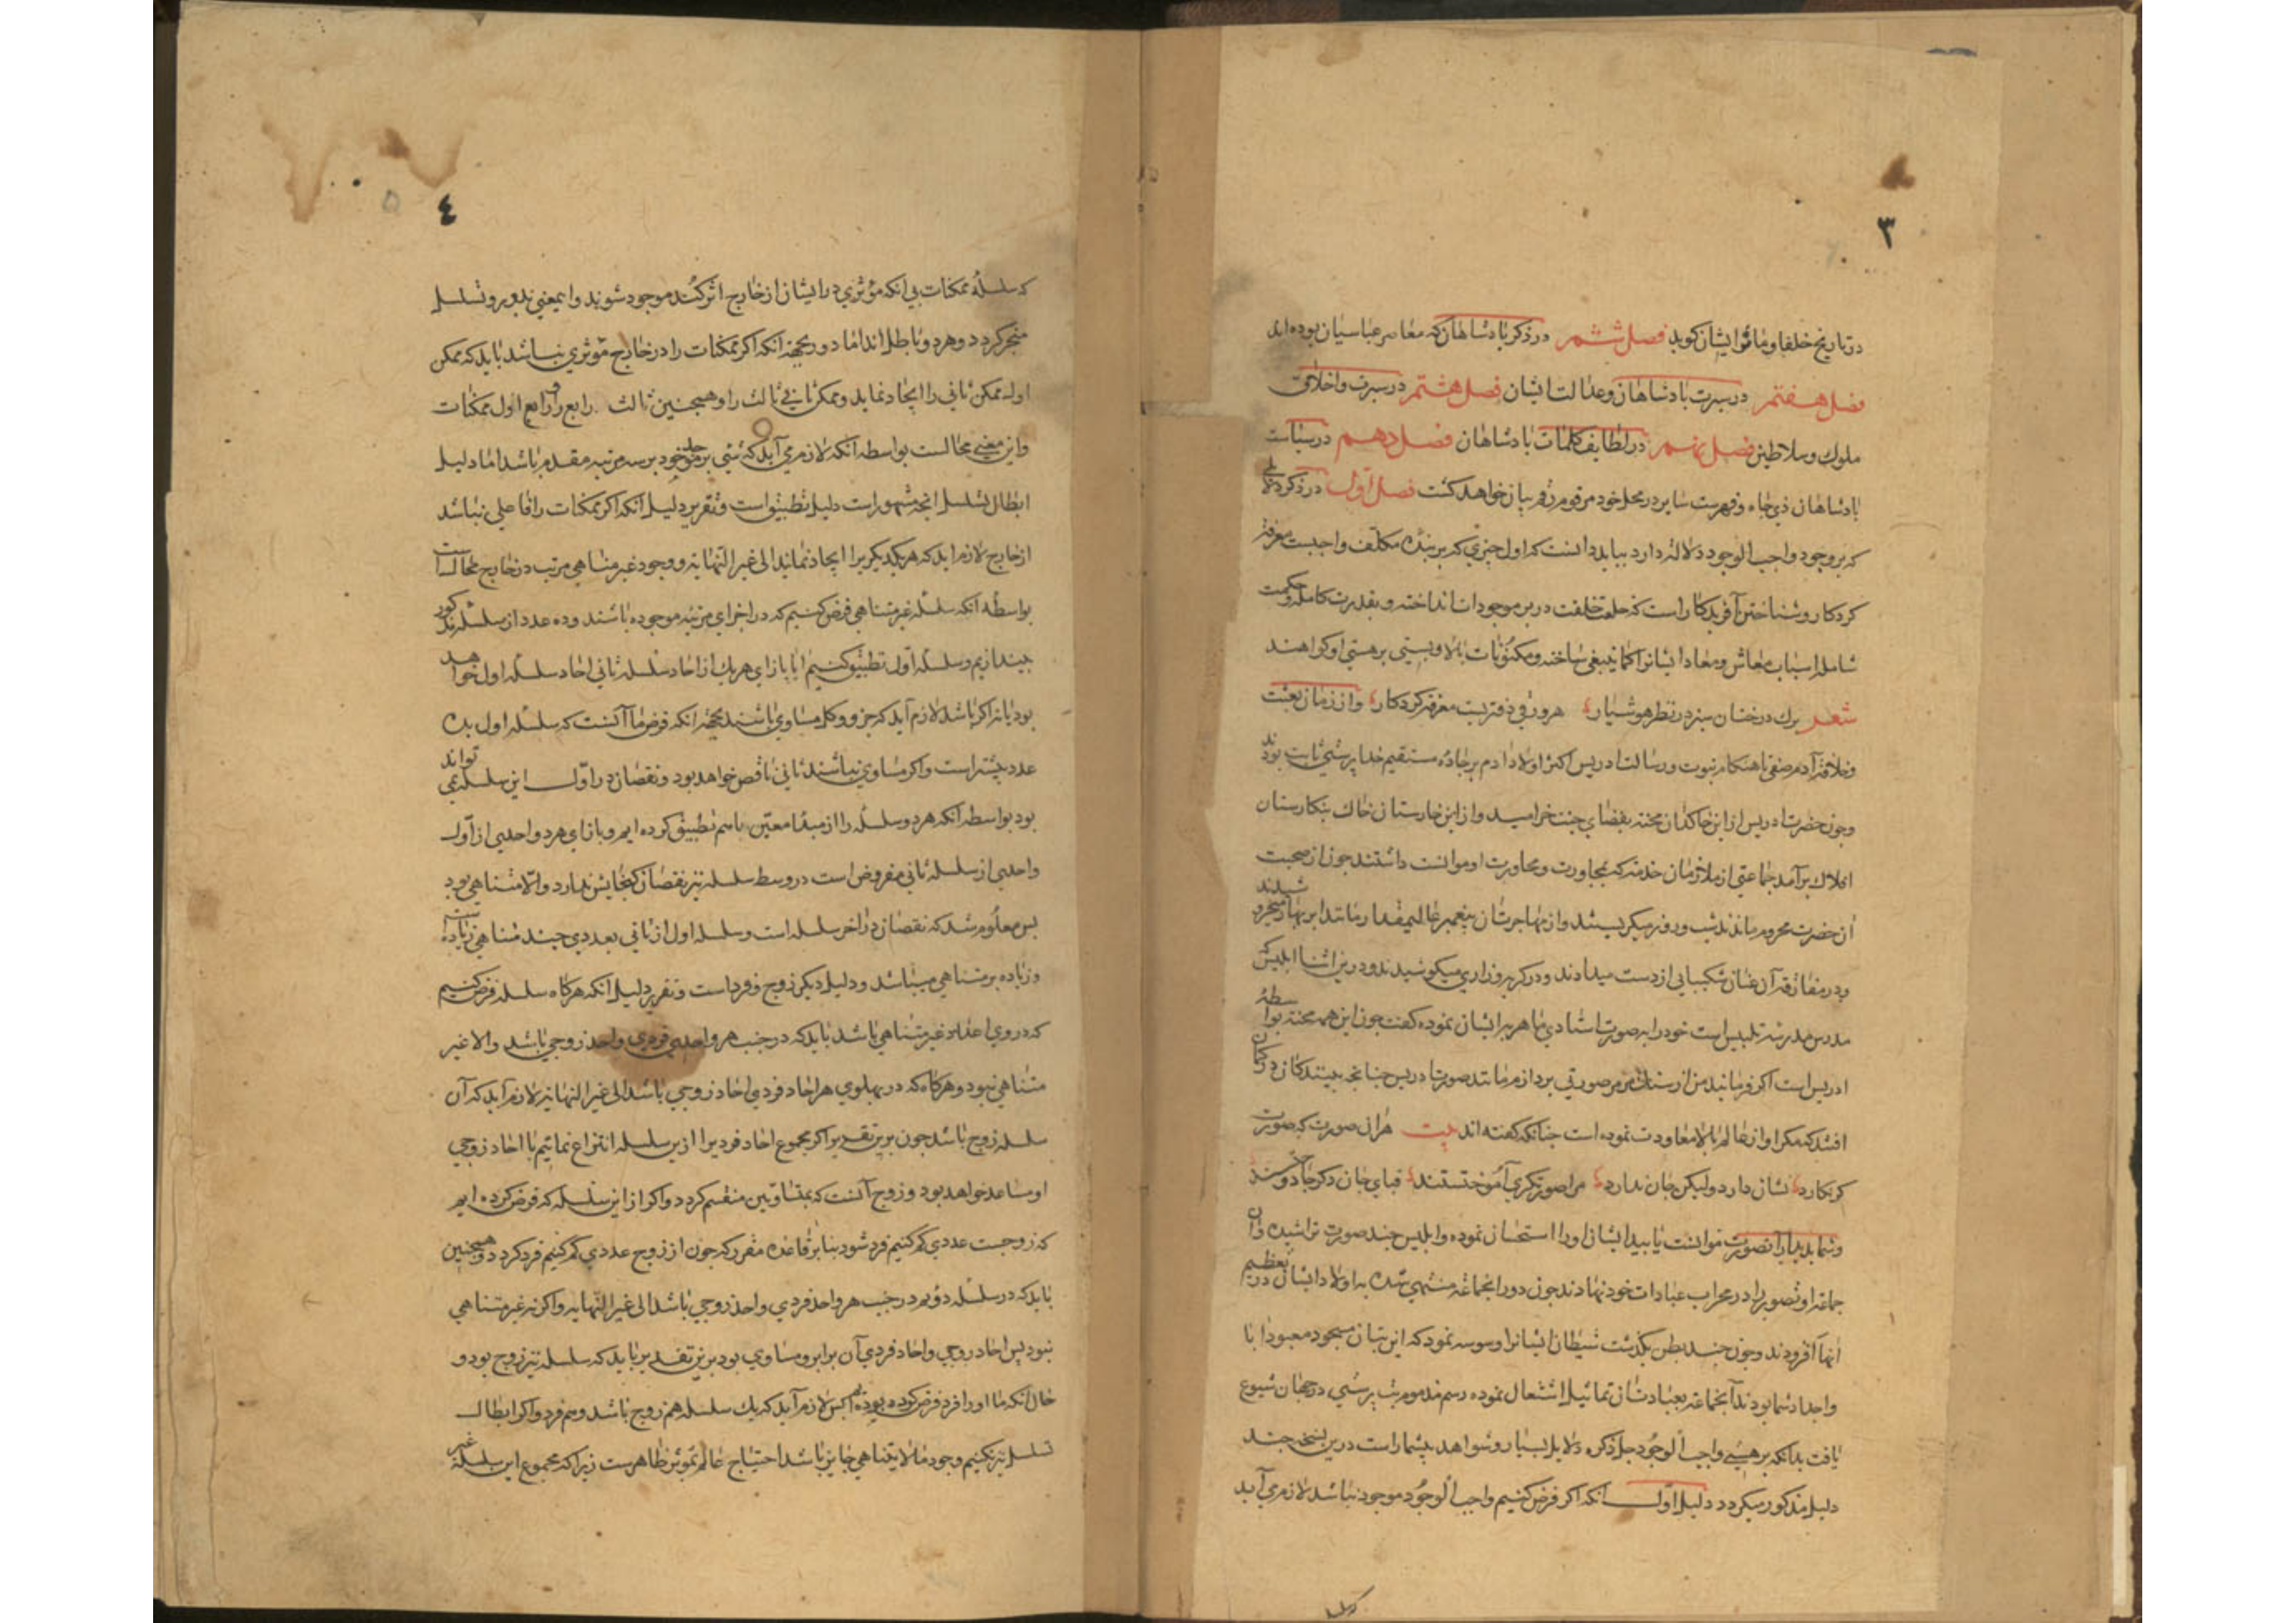 ٣
در تاریخ خلفا و مآثر ایشان کوید فصل ششم در ذکر پادشاهان که معاصر عباسیان بوده اند
فصل هفتم در سیرت پادشاهان وعدالت ایشان فصل هشتم در سیرت واخلاق
ملوک وسلاطین فصل نهم در لطایف کلمات پادشاهان فصل دهم در سیاست
پادشاهان ذی جاه وفهرست سایر در محل خود مرقوم رقم بیان خواهد کشت فصل اول در ذکر دلایلی
که بر وجود واجب الوجود دلالت دارد بباید دانست که اول چیزی که بر بنده مکلف واجبست معرفة
کردکار وشناختن آفریدکار است که خلعت خلقت در بر موجودات انداخته وبقدرت کامله وحکمت
شامله اسباب معاش ومعاد ایشانرا کما ینبغی ساخته ومکنونات بالا وپستی بر هستی او کواهند
شعر برک درختان سبز در نظر هوشیار هر ورقی دفتریست معرفة کردکار واز زمان بعثت
وخلافة آدم صفی تا هنکام نبوت ورسالت ادریس اکثر اولاد آدم بر جاده مستقیم خدا پرستی ثابت بودند
وچون حضرت ادریس از این خاکدان محنت بفضای جنت خرامید واز این خارستان خاک بنکارستان
افلاک برآمد جماعتی از ملازمان خدمة که بمجاورت ومحاورت او موانست داشتند چون از صحبت
آن حضرت محروم ماندند شب وروز میکریستند واز مهاجرت آن پیغمبر عالیمقدار مانند ابر بهار میخروشیدند
ودر مفارقة آن عنان شکیبایی از دست میدادند ودر کریه وزاری میکوشیدند ودرین اثنا ابلیس که
مدرس مدرسه تلبیس است خود را بصورت استادی ماهر بر ایشان نموده کفت چون این همه محنة بواسطهٔ
ادریس است اکر فرمانید من از سنک مرمر صورتی پردازم مانند صورت ادریس چنانچه بینندکان در کمان
افتند که مکر او از عالم بالا معاودت نموده است چنانکه کفته اند بیت هر آن صورت که صورت
کر نکارد نشان دارد ولیکن جان ندارد مرا صورتکری آموختستند قبای جان دکر جا دوختند
وشما بدیدار آن صورت موانست یابید ایشان او را استحسان نموده وابلیس چند صورت تراشیده وآن
جماعة او تصویر را در محراب عبادات خود نهادند چون دور آنجماعه منتهی شده به اولاد ایشان در تعظیم
آنها افزودند وچون چند بطن بکذشت شیطان ایشانرا وسوسه نمود که این بتان مسجود ومعبود آبا
واجداد شما بودند آنجماعة بعبادت آن تماثیل اشتغال نموده رسم مذموم بت پرستی در جهان شیوع
یافت بدانکه بر هستی واجب الوجود جل ذکره دلایل بسیار وشواهد بیشمار است درین نسخه چند
دلیل مذکور میکردد دلیل اول انکه اکر فرض کنیم واجب الوجود موجود نباشد لازم می آید
٤
٥
که سلسلهٔ ممکنات بی انکه مؤثری در ایشان از خارج اثر کند موجود شوند واین معنی بدور وتسلسل
منجر کردد وهر دو باطل اند اما دور بجهة آنکه اکر ممکنات را در خارج مؤثری نباشد باید که ممکن
اول ممکن ثانی را ایجاد نماید وممکن ثانی ثالث را وهمچنین ثالث رابع را ورابع اول ممکنات
واین معنی محالست بواسطه آنکه لازم می آید که شئی بر خود بسه مرتبه مقدم باشد اما دلیل
ابطال تسلسل انچه مشهور است دلیل تطبیق است وتقریر دلیل انکه اکر ممکنات را فاعلی نباشد
از خارج لازم اید که هر یک دیکریرا ایجاد نماند الی غیر النهایة ووجود غیر متناهی مرتب در خارج محالست
بواسطه انکه سلسله غیر متناهی فرض کنیم که در اجزای مرتبه موجوده باشند وده عدد از سلسله مذکور
بیندازیم وسلسله اول تطبیق کنیم ایا بازای هر یک از احاد سلسله ثانی احاد سلسله اول خواهد
بود یا نه اکر باشد لازم آید که جزو وکل مساوی باشند بجهة انکه فرض ما آنست که سلسله اول بده
عدد بیشتر است واکر مساوی نباشند ثانی ناقص خواهد بود ونقصان در اول این سلسله نمی تواند
بود بواسطه آنکه هر دو سلسله را از مبدا معین باسم تطبیق کرده ایم وبازای هر واحدی از اول
واحدی از سلسله ثانی مفروض است در وسط سلسله نیز نقصان کنجایش ندارد والا متناهی بود
پس معلوم شد که نقصان در آخر سلسله است وسلسله اول از ثانی بعددی چند متناهی زیاده است
وزیاده بر متناهی متناهی باشد ودلیل دیکر زوج وفرد است وتقریر دلیل انکه هرکاه سلسله فرض کنیم
که در وی اعداد غیر متناهی باشد باید که در جنب هر واحدی فردی واحد زوجی باشد والا غیر
متناهی نبود وهرکاه که در پهلوی هر احاد فردی احاد زوجی باشد الی غیر النهایة لازم آید که آن
سلسله زوج باشد چون برین تقدیر اکر مجموع احاد فردیرا ازین سلسله انتزاع نمائیم با احاد زوجی
او مساعد خواهد بود وزوج آنست که بمتساویین منقسم کردد واکر از این سلسله که فرض کرده ایم
که زوجست عددی کم کنیم فرد شود بنا بر قاعده مقرر که چون از زوج عددی کم کنیم فرد کردد وهمچنین
باید که در سلسله دویم در جنب هر واحد فردی واحد زوجی باشد الی غیر النهایه واکر نه غیر متناهی
نبود پس احاد زوجی واحاد فردی آن برابر ومساوی بود برین تقدیر باید که سلسله نیز زوج بود و
حال انکه ما او را فرد فرض کرده بودیم پس لازم آید که یک سلسله هم زوج باشد وهم فرد واکر ابطال
تسلسل نیز نکنیم وجود ما لا یتناهی جایز باشد احتیاج عالم بموثر ظاهرست زیرا که مجموع این سلسله غیر